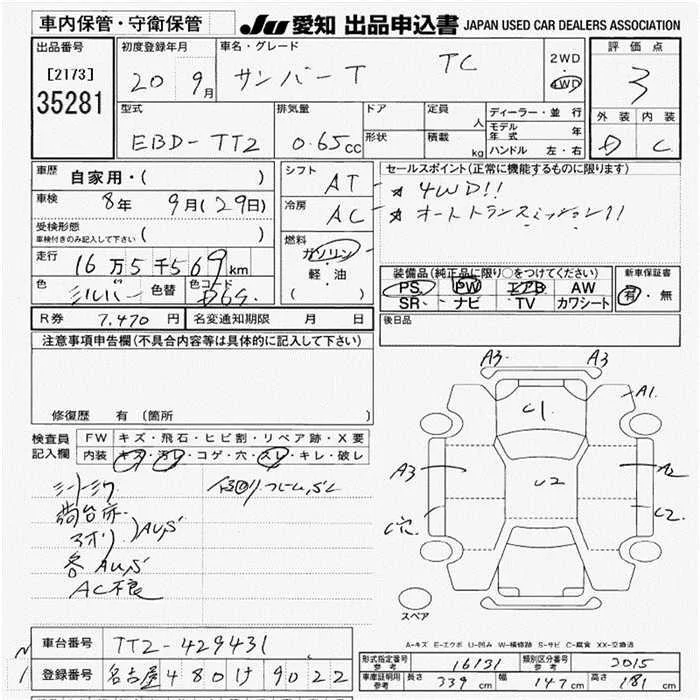 車内保管・守衛保管
JU 愛知 出品申込書 JAPAN USED CAR DEALERS ASSOCIATION
出品番号
[2173]
35281
初度登録年月
20 9月
車名・グレード
サンバーT TC
2WD
4WD
評価点
3
外装 内装
D C
型式
EBD-TT2
排気量
0.65cc
ドア
形状
定員 人
積載 kg
ディーラー・並行
モデル年式 年
ハンドル 左・右
車歴 自家用・( )
車検 8年 9月(29日)
受検形態
車検付きのみ記入して下さい ( )
走行 16万5千569km
色 シルバー 色替 色コード D6S
シフト AT
冷房 AC
燃料
ガソリン
軽・油
( )
セールスポイント(正常に機能するものに限ります)
★ 4WD!!
★ オートトランスミッション!!
装備品(純正品に限り○をつけてください)
PS PW エアB AW
SR ナビ TV カワシート
新車保証書
有・無
R券 7,470円 名変通知期限 月 日
後日品
注意事項申告欄(不具合内容等は具体的に記入して下さい)
修復歴 有(箇所
検査員記入欄
FW キズ・飛石・ヒビ割・リペア跡・X要
内装 キズ・汚レ・コゲ・穴・スレ・キレ・破レ
シートシワ
荷台
AU,S
各AU,S
AC不良
A3 A3
A1
C1
A3 A2
U2
C2
スペア
A-キズ E-エクボ U-凹み W-補修跡 S-サビ C-腐食 XX-交換済
車台番号 TT2-429431
登録番号 名古屋 480 け 9022
形式指定番号 参考 16131 類別区分番号 参考 2015
車庫証明用 参考 長さ 339cm 幅 147cm 高さ 181cm